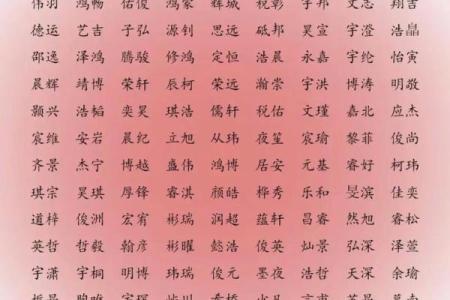 伟羽 鸿畅 佑俊 鸿蒙 辉城 税彰 宇邦 文志 翔吉
德运 艺吉 子弘 源钊 思远 砥邦 昊宣 宇澄 浩皛
邵逸 泽鸿 腾骏 修鸿 定恒 浩晨 永嘉 宇纶 怡寅
晨辉 靖博 荣轩 辰柯 荣远 瀚崇 宇洪 博涛 明敬
颢兴 浩韬 奕昊 琪浩 儒轩 税佑 文瑾 嘉北 应杰
宸维 安岩 晨纪 立旭 从玮 夜笙 宸瑜 黎菲 俊尚
齐景 杰宁 博越 盛伟 鸿博 居安 元基 睿好 柯玮
琪宗 昊琪 厚锋 睿淇 颜皓 桦秀 乐和 旻滨 佳奕
道梓 俊洲 宏宥 彬瑞 润超 蕴轩 昌睿 然旭 睿松
英哲 哲毅 翰彦 彬曜 懿浩 俊英 灿景 弘深 泽萱
宇潇 宇桐 明博 玮瑞 俊元 墨夜 浩哲 天深 余瑜